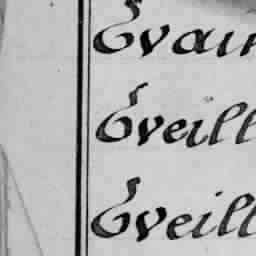 Evau
Éveill
Éveill